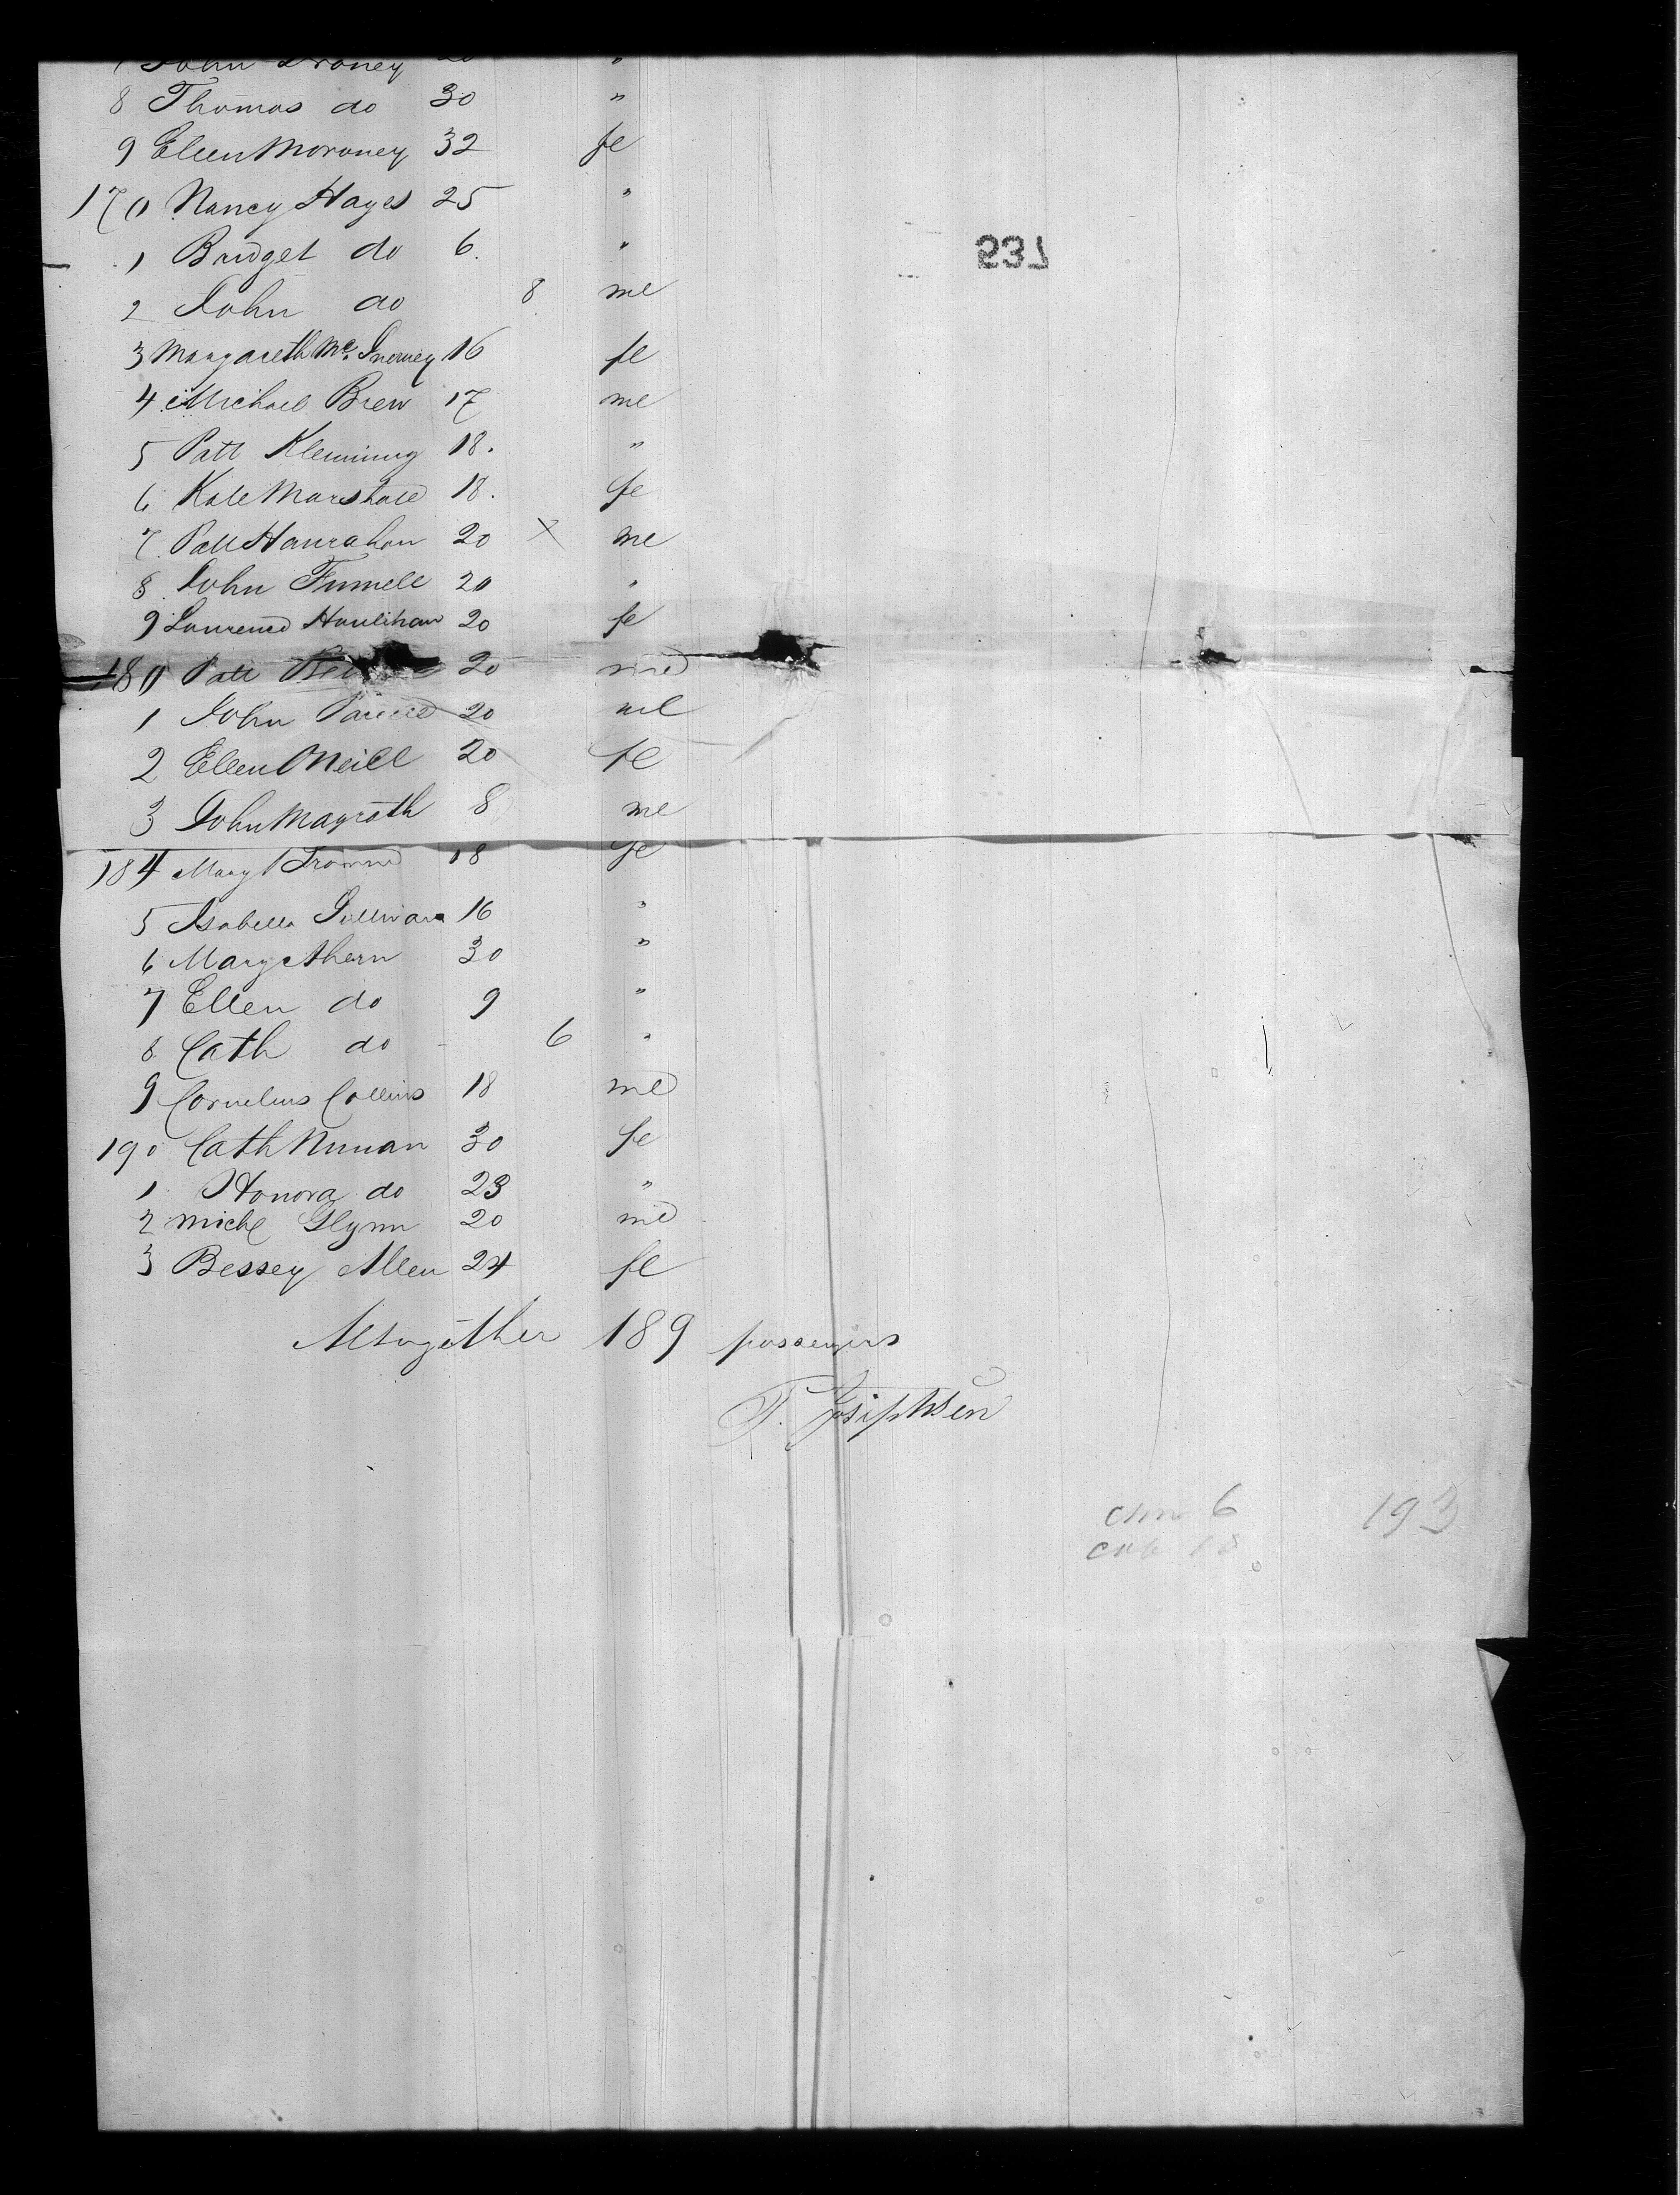 John Droney
8 Thomas do 30 "
9 Ellen Moroney 32 fe
170 Nancy Hayes 25 "
1 Bridget do 6. "
2 John do 8 me
3 Margareth Mc. Inerney 16 fe
4 Michael Brew 17 me
5 Patt Klemming 18. "
6 Kate Marshall 18. fe
7 Patt Hanrahan 20 X me
8 John Funnell 20 "
9 Laurence Houlihan 20 fe
180 Patt 20 me
1 John 20 me
2 Ellen ONeill 20 fe
3 John Magrath 8 me
184 Mary Browne 18 fe
5 Isabella Sullivan 16 "
6 Mary Ahern 30 "
7 Ellen do 9 "
8 Cath do - 6 "
9 Cornelius Collins 18 me
190 Cath Nunan 30 fe
1 Honora do 23 "
2 Michl Glynn 20 me
3 Bessey Allen 24 fe
Altogether 189 passengers
T. Josephsen
6 193
18
237